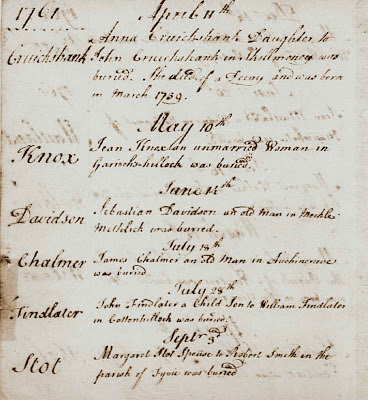 1761
April 11th
Anna Cruickshank Daughter to
Cruickshank John Cruickshank in was
buried. She died of a and was born
in March 1739.
May 10th
Knox Jean Knox an unmarried Woman in
Gariochs-hillock was buried.
June 14th
Davidson Sebastian Davidson an old man in Meekle
Methlick was buried.
July 18th
Chalmer James Chalmer an old Man in Auchincrive
was buried.
July 28th
Findlater John Findlater a Child Son to William Findlater
in Cottonhillock was buried.
Septr 3d
Stot Margaret Stot Spouse to Robert Smith in the
parish of Fyvie was buried